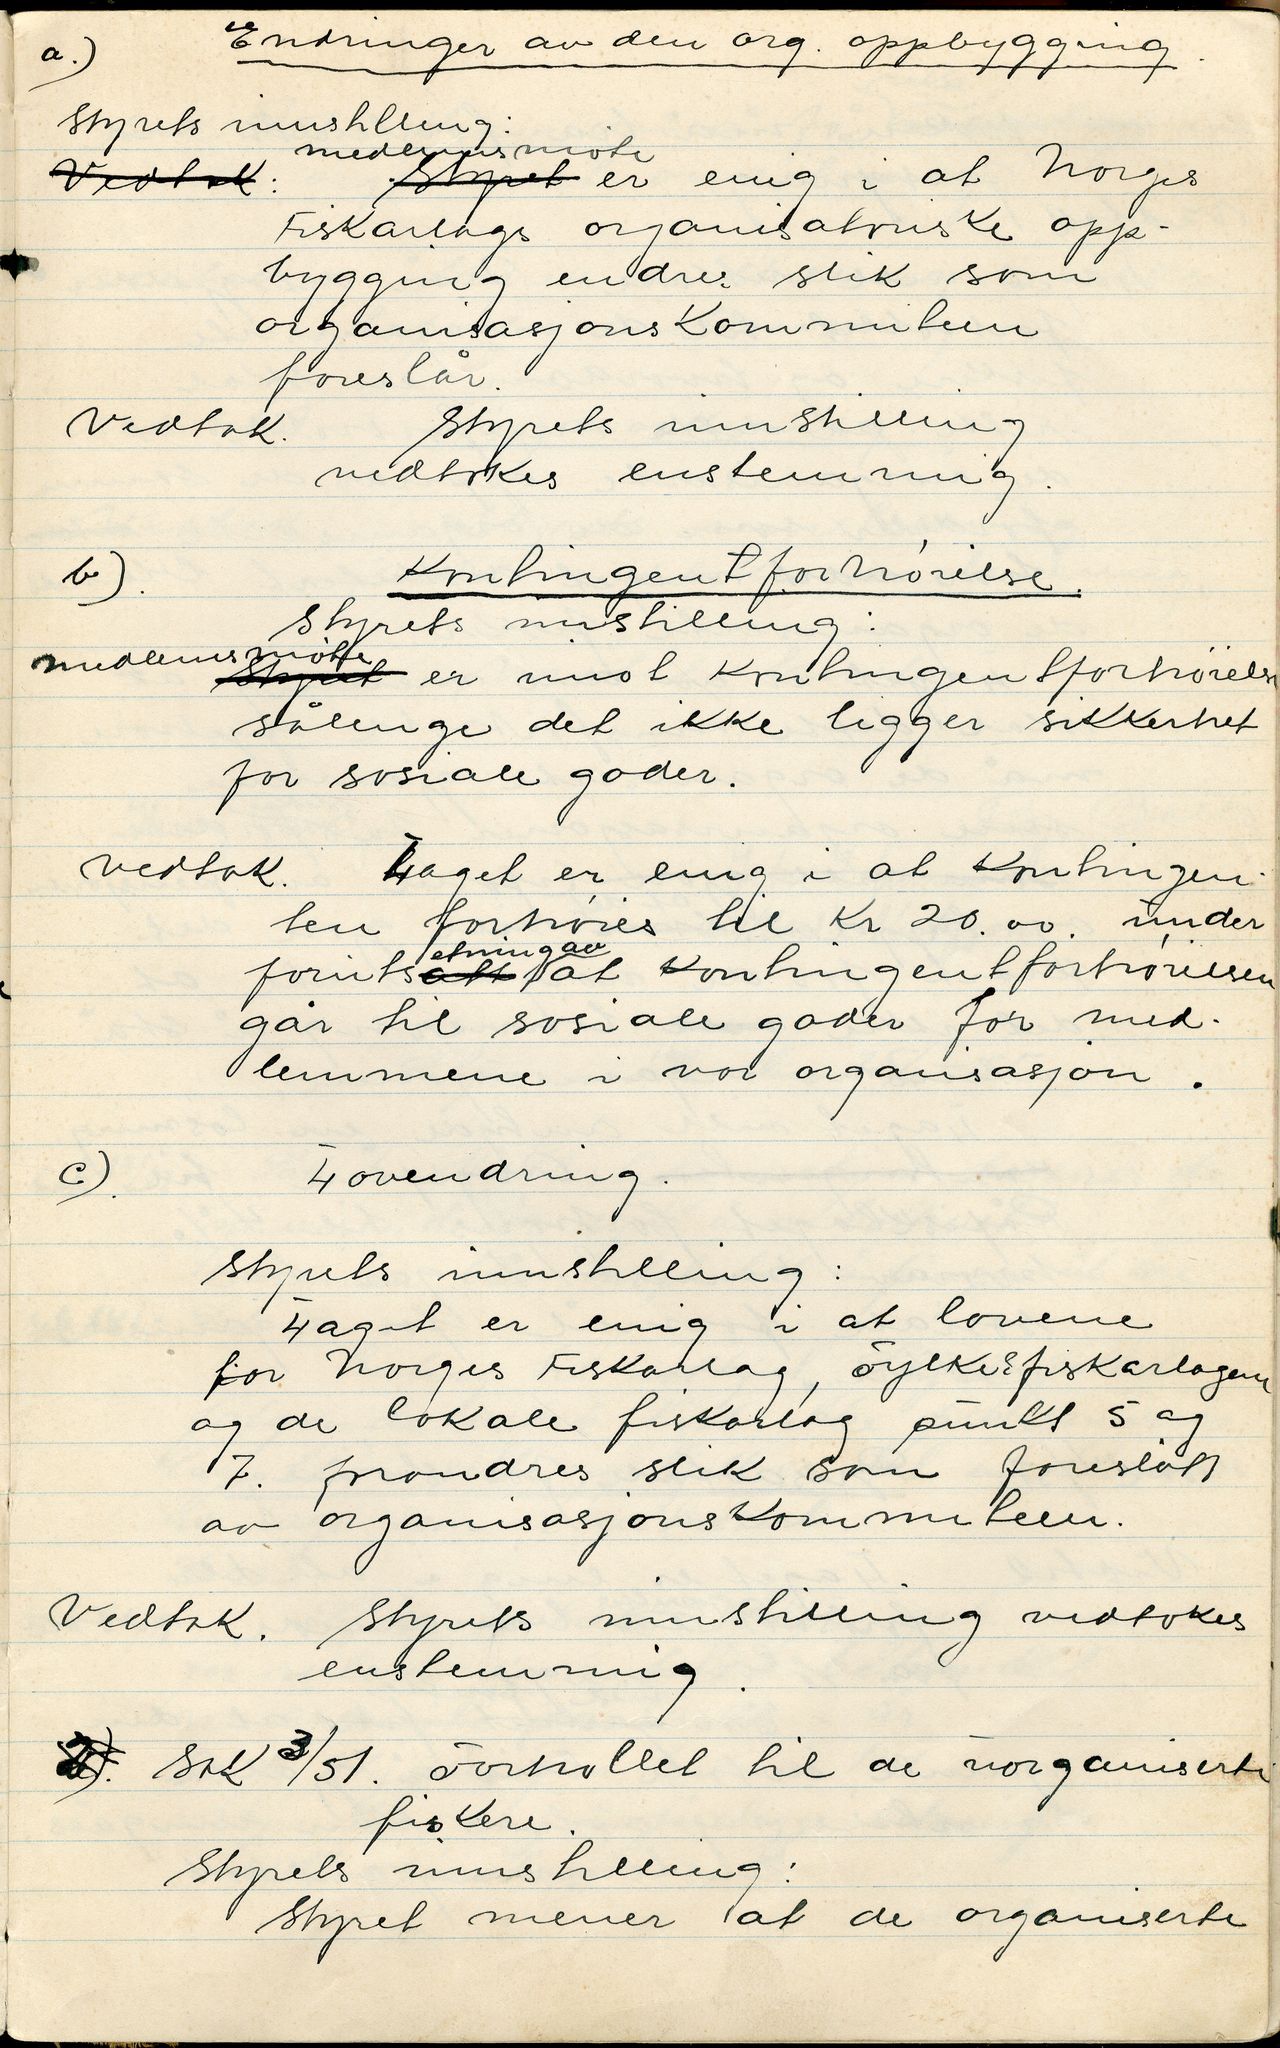 a.) Endringer av den org. oppbygging.
Styrets innstilling:
medlemsmøte
Vedtak: Styret er enig i at Norges
Fiskarlags organisatoriske opp-
bygging endres slik som
organisasjonskommiteen
foreslår.
Vedtak. Styrets innstilling
vedtakes enstemmig.
b). Kontingentforhøielse.
Styrets innstilling:
medlemsmøte
Styret er imot kontingentforhøielse
sålenge det ikke ligger sikkerhet
for sosiale goder.
Vedtak. Laget er enig i at kontingen-
ten forhøies til kr 20.00. under
etning av
forutsatt at kontingentforhøielsen
går til sosiale goder for med-
lemmene i vor organisasjon.
c). Lovendring.
Styrets innstilling:
Laget er enig i at lovene
for Norges Fiskarlag, Fylkesfiskarlagene
og de lokale fiskarlag punkt 5 og
7. forandres slik som foreslått
av organisasjonskommiteen.
Vedtak. Styrets innstilling vedtakes
enstemmig.
2). Sak 3/51. Forholdet til de uorganiserte
fiskere.
Styrets innstilling:
Styret mener at de organiserte